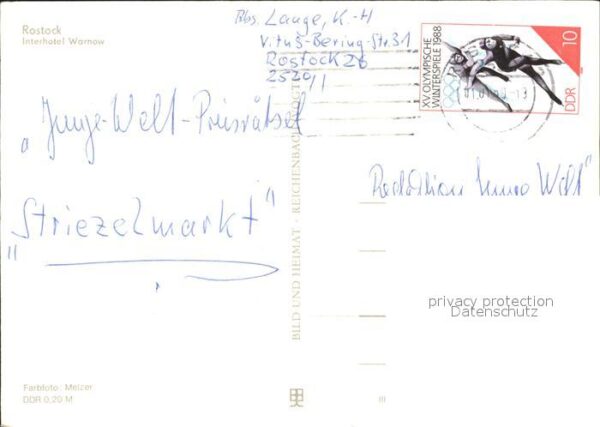 Rostock
Interhotel Warnow
Abs. Lange, K.-H
Vitus-Bering-Str. 31
Rostock 26
2520
XV. OLYMPISCHE
WINTERSPIELE 1988
10
DDR
"Junge-Welt-Preisrätsel
"Striezelmarkt"
Redaktion Junge Welt"
BILD UND HEIMAT · REICHENBACH
privacy protection
Datenschutz
Farbfoto: Melzer
DDR 0,20 M